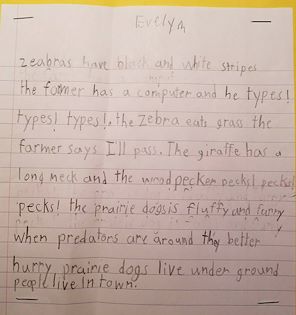 Evelyn
zeabras have black and white stripes
the former has a computer and he types!
types! types!. the zebra eats grass the
farmer says I'll pass. The giraffe has a
long neck and the wood pecker pecks! pecks!
pecks! the prairie dogs is fluffy and furry
when predators are around they better
hurry prairie dogs live under ground
people live in town.